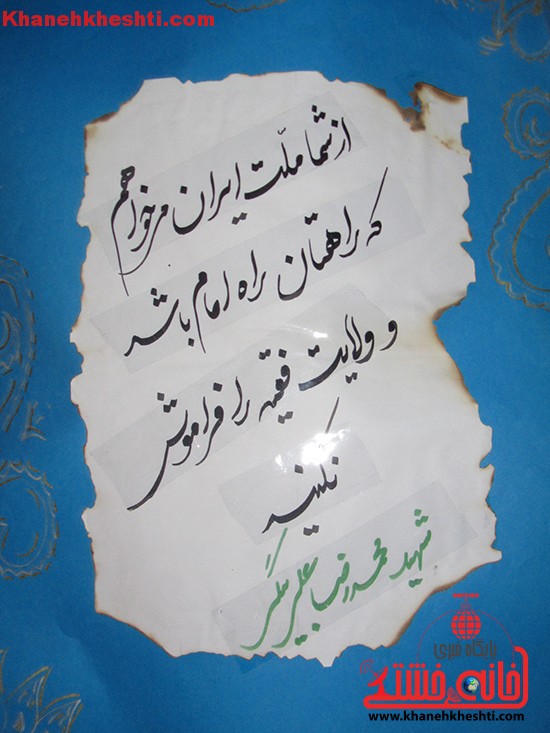 Khanehkheshti.com
از شما ملّت ایران می‌خواهم
که راهتان راه امام باشد
و ولایت فقیه را فراموش
نکنید
شهید محمدرضا علی
پایگاه خبری
خانه خشتی
www.khanehkheshti.com